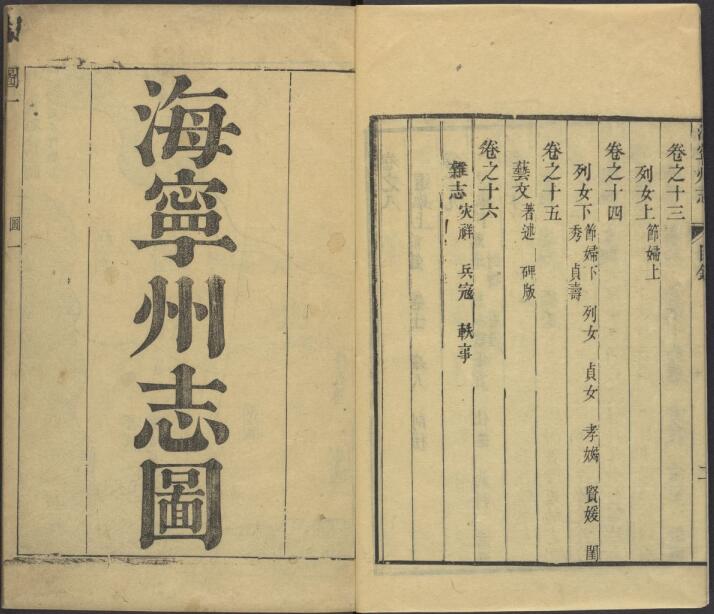 卷之十三
列女上 節婦上
卷之十四
列女下 節婦下 列女 貞女 孝婦 賢媛 閨
秀 貞壽
卷之十五
藝文 著述 碑版
卷之十六
雜志 灾祥 兵寇 軼事
海寧州志圖
圖一
圖一